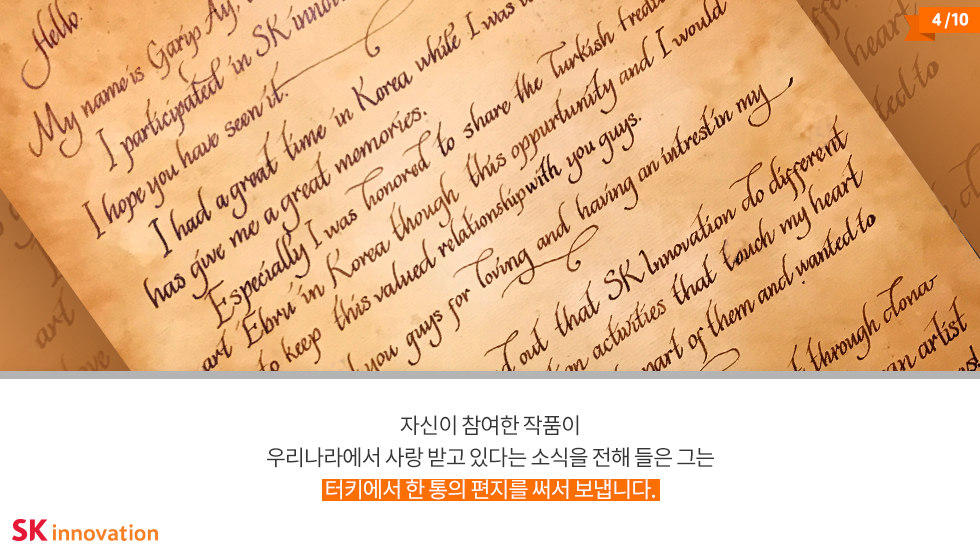 4 /10
Hello.
My name is Garip Ay,
I participated in SK innov
I hope you have seen it.
I had a great time in Korea while I was
has give me a great memories.
Especially I was honored to share the Turkish
art Ebru in Korea though this oppurtunity and I would
to keep this valued relationship with you guys.
you guys for loving and having an intrest in my
out that SK Innovation do different
activities that touch my heart
part of them and wanted to
through dona
an artist
자신이 참여한 작품이
우리나라에서 사랑 받고 있다는 소식을 전해 들은 그는
터키에서 한 통의 편지를 써서 보냅니다.
SK innovation